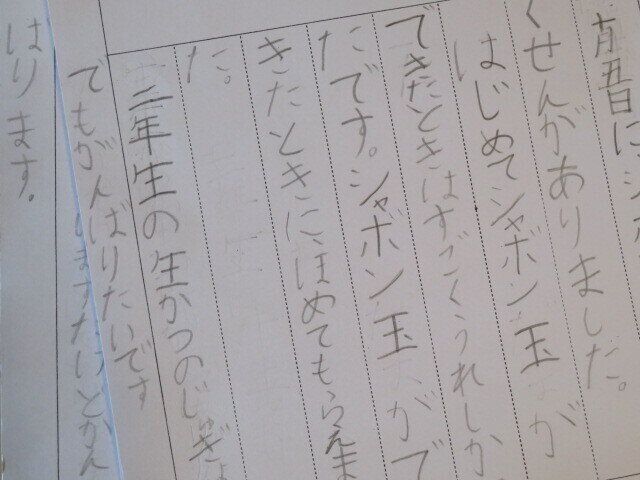 月五日に
くせんがありました。
はじめてシャボン玉が
できたときはすごくうれしか
たです。シャボン玉がで
きたときに、ほめてもらえま
た。
三年生の生かつのじゅぎょ
でもがんばりたいです
はります。